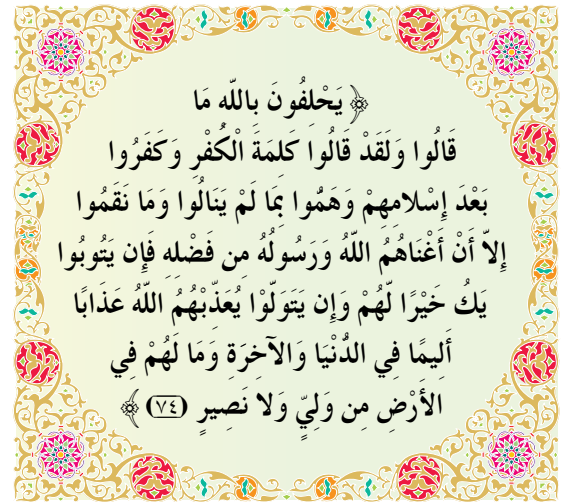 ﴿ يَحْلِفُونَ بِاللّهِ مَا
قَالُوا وَلَقَدْ قَالُوا كَلِمَةَ الْكُفْرِ وَكَفَرُوا
بَعْدَ إِسْلامِهِمْ وَهَمُّوا بِمَا لَمْ يَنَالُوا وَمَا نَقَمُوا
إِلاّ أَنْ أَغْنَاهُمُ اللّهُ وَرَسُولُهُ مِن فَضْلِهِ فَإِن يَتُوبُوا
يَكُ خَيْرًا لّهُمْ وَإِن يَتَوَلّوْا يُعَذّبْهُمُ اللّهُ عَذَابًا
أَلِيمًا فِي الدُّنْيَا وَالآخِرَةِ وَمَا لَهُمْ فِي
الأَرْضِ مِن وَلِيّ وَلا نَصِيرٍ (٧٤) ﴾